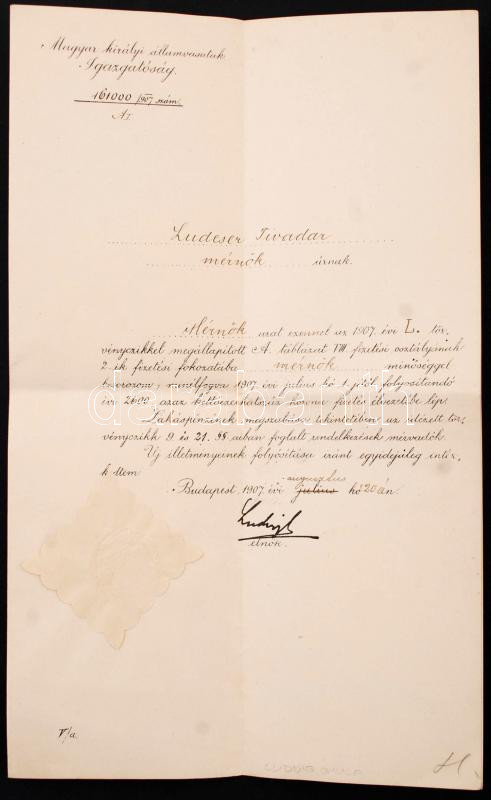 Magyar királyi államvasutak
Igazgatóság.
161000/907 szám.
A I.
Ludeser Tivadar
mérnök úrnak.
Mérnök urat ezennel az 1907. évi L. tör-
vényczikkel megállapított A. táblázat VIII. fizetési osztályának
2-ik fizetési fokozatába mérnök minőséggel
besorozom; minélfogva 1907. évi julius hó 1-jétől folyósítandó
évi 2600, azaz korona fizetés élvezetébe lép.
Lakáspénzének megszabása tekintetében az idézett tör-
vényczikk 9 és 21. §§-aiban foglalt rendelkezések mérvadók.
Új illetményeinek folyósítása iránt egyidejűleg intéz-
k ttem.
augusztus
Budapest, 1907. évi julius hó 20 án.
Ludvigh
elnök.
V/a.
LUDVIG GYULA
darabanth.com